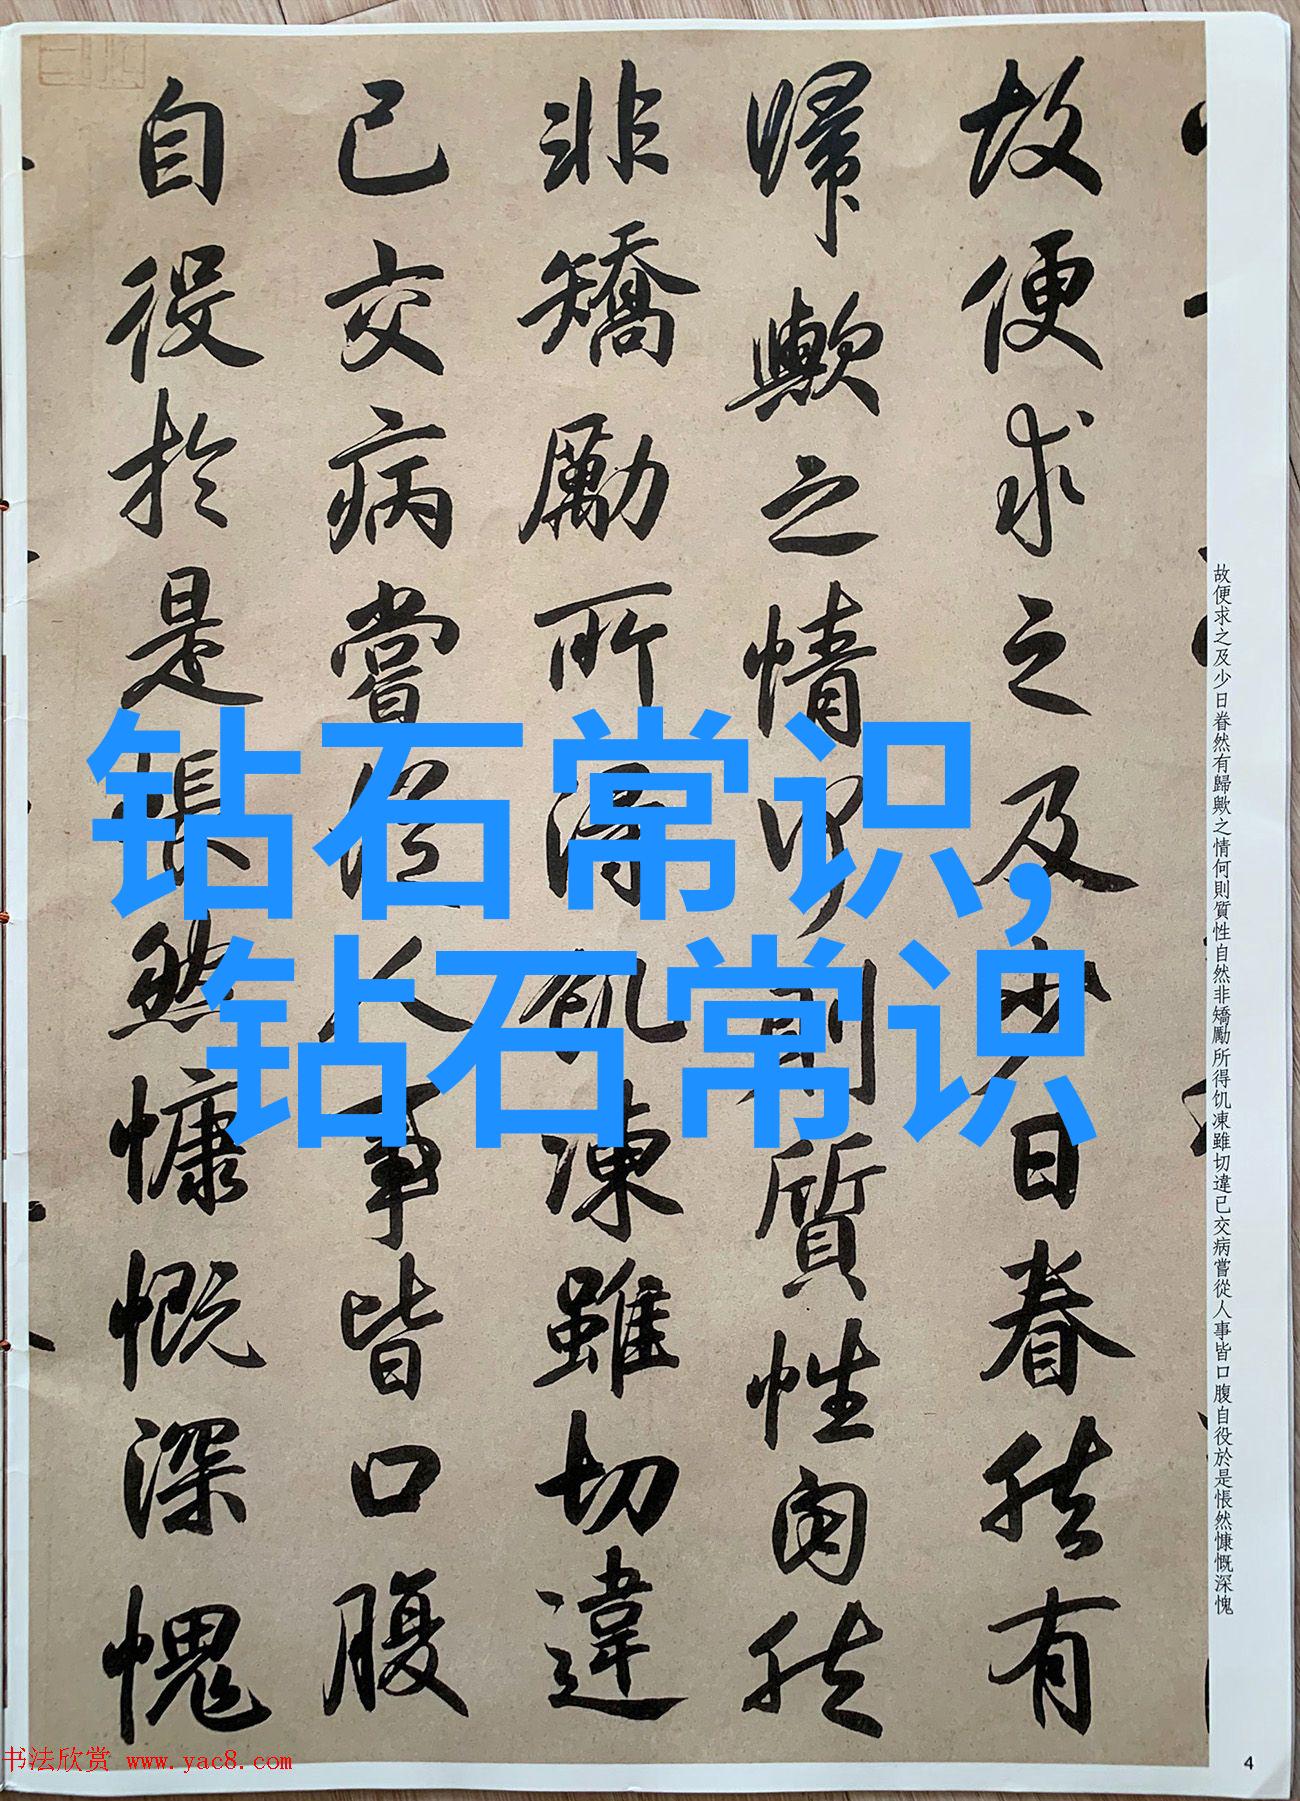 故便求之及少日眷然有
歸歟之情何則質性自然
非矯勵所得飢凍雖切違
已交病嘗從人事皆口腹
自役於是悵然慷慨深愧
钻石常识,
钻石常识
故便求之及少日眷然有歸歟之情何則質性自然非矯勵所得饥凍雖切違已交病嘗從人事皆口腹自役於是悵然慷慨深愧
书法欣赏 www.yac8.com
4